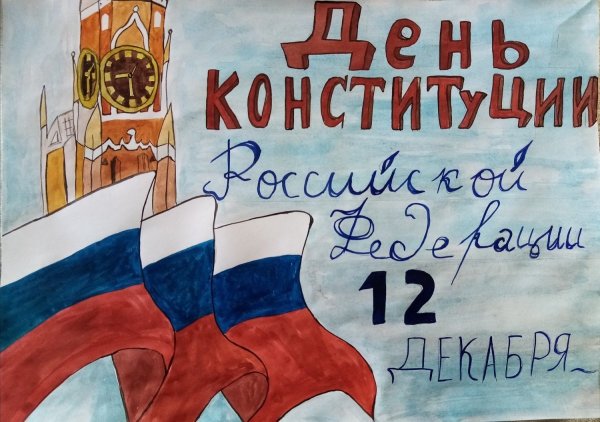 День
КОНСТИТУЦИИ
Российской
Федерации
12
ДЕКАБРЯ